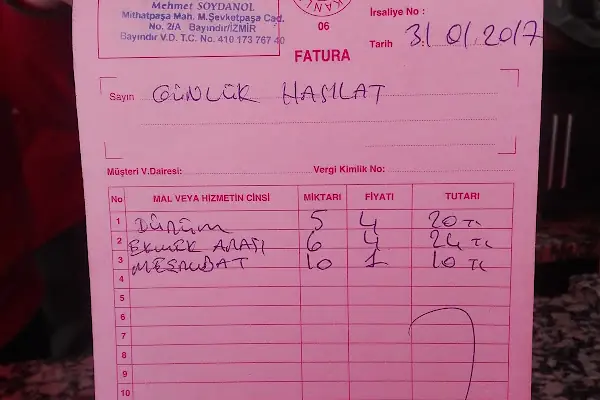 Mehmet SOYDANOL
Mithatpaşa Mah. M.Şevketpaşa Cad.
No. 2/A Bayındır/İZMİR
Bayındır V.D. T.C. No. 410 173 767 40
06
İrsaliye No :
Tarih 31.01.2017
FATURA
Sayın GÜNLÜK HASILAT
Müşteri V.Dairesi: Vergi Kimlik No:
No MAL VEYA HİZMETİN CİNSİ MİKTARI FİYATI TUTARI
1 DÜRÜM 5 4 20 TL
2 EKMEK ARASI 6 4 24 TL
3 MEŞRUBAT 10 1 10 TL
4
5
6
7
8
9
10